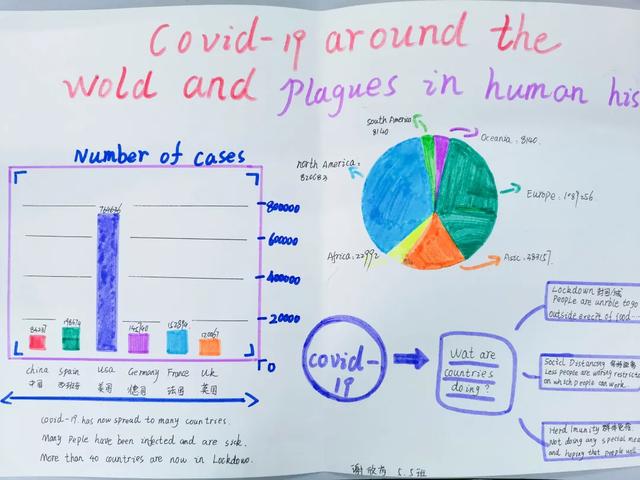 Covid-19 around the
wold and Plagues in human his
Number of cases
800000
600000
400000
20000
To
china
spain
usa
Germany
France
U.k
中国
西班牙
美国
德国
法国
英国
Covid-19 has now spread to many countries.
Many Peple have been infected and are sick.
More than 40 countries are now in Lockdown.
South America
8140
Oceania: 8140.
North America:
Europe:
Africa: 22992
covid-
19
Wat are
countries
doing?
Lockdown
People are unable to go
outside of food
Social Distancing
Less people are
on which people can work.
Herd Imunity 群体免疫
Not doing any special
and hoping that people will
5.5班